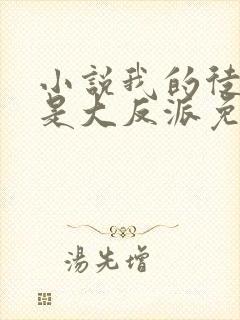 小說我的徒
是大反派免
湯先增